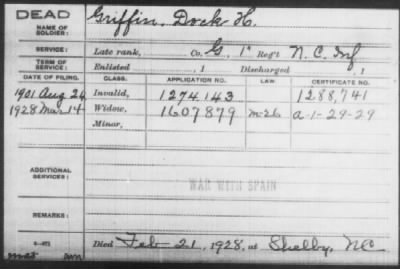 DEAD
NAME OF SOLDIER:
Griffin, Dock H.
SERVICE:
Late rank, Co. G, 1" Reg't N.C. Inf
TERM OF SERVICE:
Enlisted , 1 Discharged , 1
DATE OF FILING. CLASS. APPLICATION NO. LAW. CERTIFICATE NO.
1901 Aug 26 Invalid, 1274,143 1,288,741
1928 Mar 14 Widow, 1607879 M-26 A-1-29-29
Minor,
ADDITIONAL SERVICES:
WAR WITH SPAIN
REMARKS:
Died Feb 21, 1928, at Shelby, NC